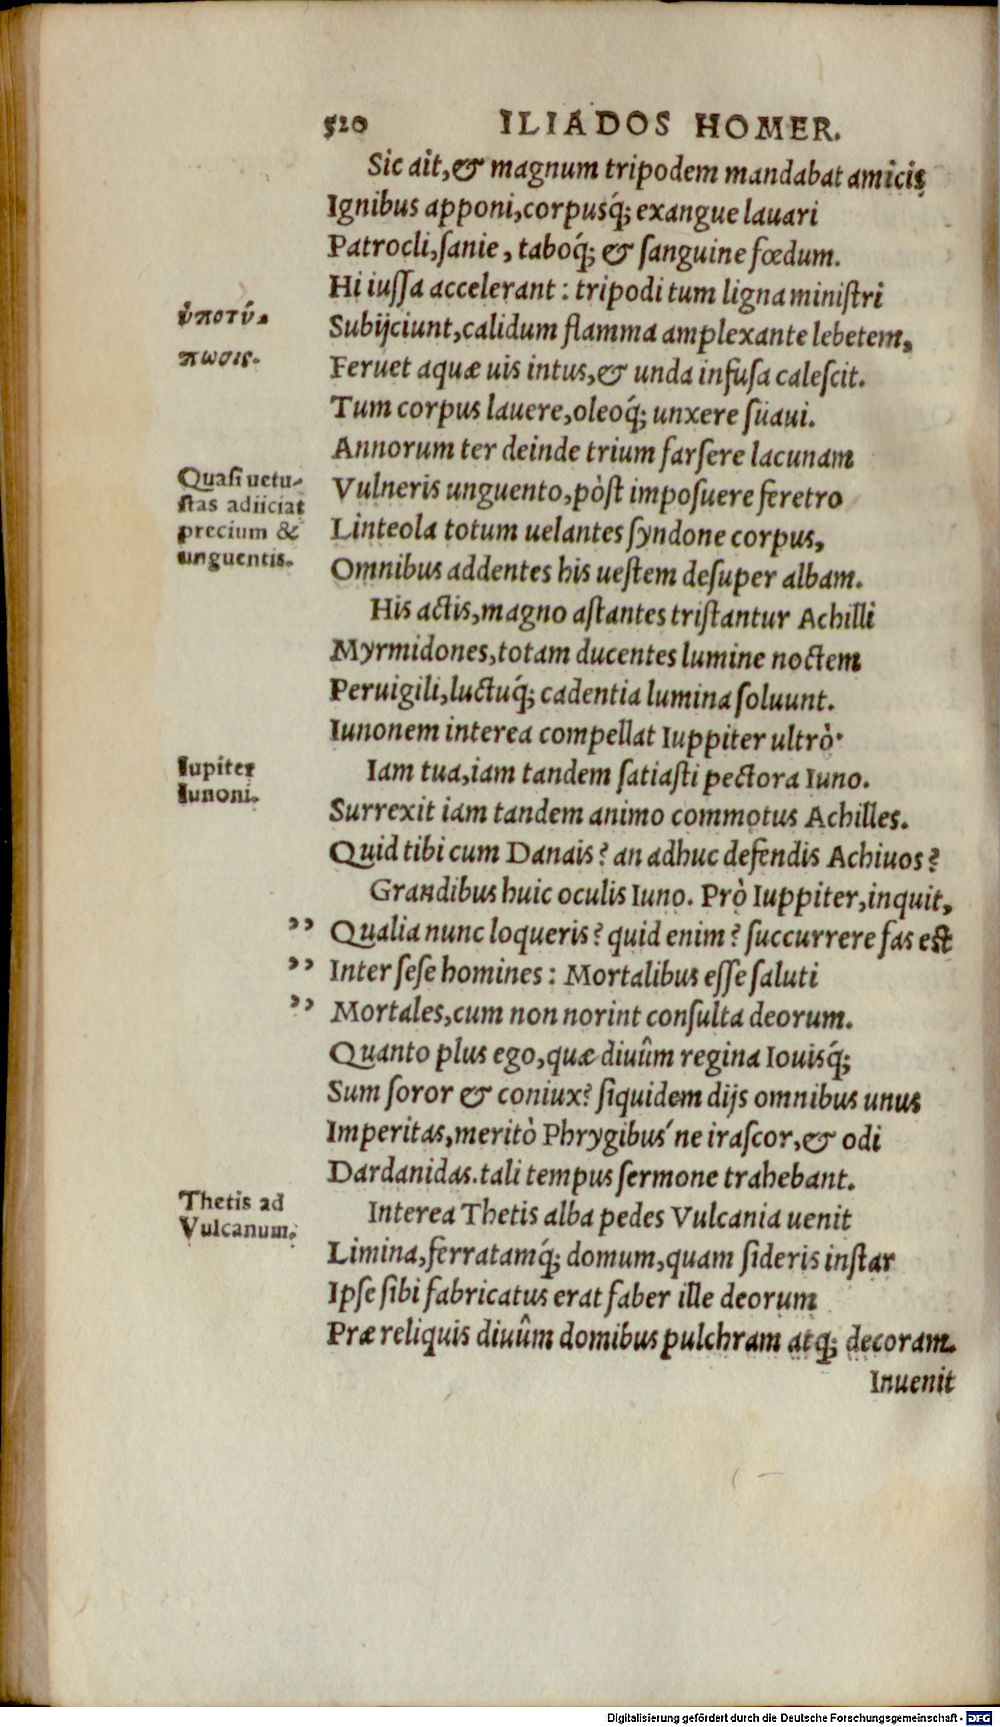 520 ILIADOS HOMER.
Sic ait, & magnum tripodem mandabat amicis
Ignibus apponi, corpusq́; exangue lauari
Patrocli, ſanie, taboq́; & ſanguine fœdum.
Hi iuſſa accelerant: tripodi tum ligna miniſtri
ὑποτύ-
Subijciunt, calidum flamma amplexante lebetem,
πωσις.
Feruet aquæ uis intus, & unda infuſa caleſcit.
Tum corpus lauere, oleoq́; unxere ſüaui.
Annorum ter deinde trium farſere lacunam
Quaſi uetu-
ſtas adijciat
precium &
unguentis.
Vulneris unguento, pòſt impoſuere feretro
Linteola totum uelantes ſyndone corpus,
Omnibus addentes his ueſtem deſuper albam.
His actis, magno aſtantes triſtantur Achilli
Myrmidones, totam ducentes lumine noctem
Peruigili, luctuq́; cadentia lumina ſoluunt.
Iunonem interea compellat Iuppiter ultrò·
Iupiter
Iunoni.
Iam tua, iam tandem ſatiaſti pectora Iuno.
Surrexit iam tandem animo commotus Achilles.
Quid tibi cum Danais? an adhuc defendis Achiuos?
Grandibus huic oculis Iuno. Prò Iuppiter, inquit,
”Qualia nunc loqueris? quid enim? ſuccurrere fas eſt
”Inter ſeſe homines: Mortalibus eſſe ſaluti
”Mortales, cum non norint conſulta deorum.
Quanto plus ego, quæ diuûm regina Iouisq́;
Sum ſoror & coniux? ſiquidem dijs omnibus unus
Imperitas, meritò Phrygibus´ne iraſcor, & odi
Dardanidas. tali tempus ſermone trahebant.
Thetis ad
Vulcanum.
Interea Thetis alba pedes Vulcania uenit
Limina, ferratamq́; domum, quam ſideris inſtar
Ipſe ſibi fabricatus erat faber ille deorum
Præ reliquis diuûm domibus pulchram atq́; decoram.
Inuenit
Digitalisierung gefördert durch die Deutsche Forschungsgemeinschaft - DFG